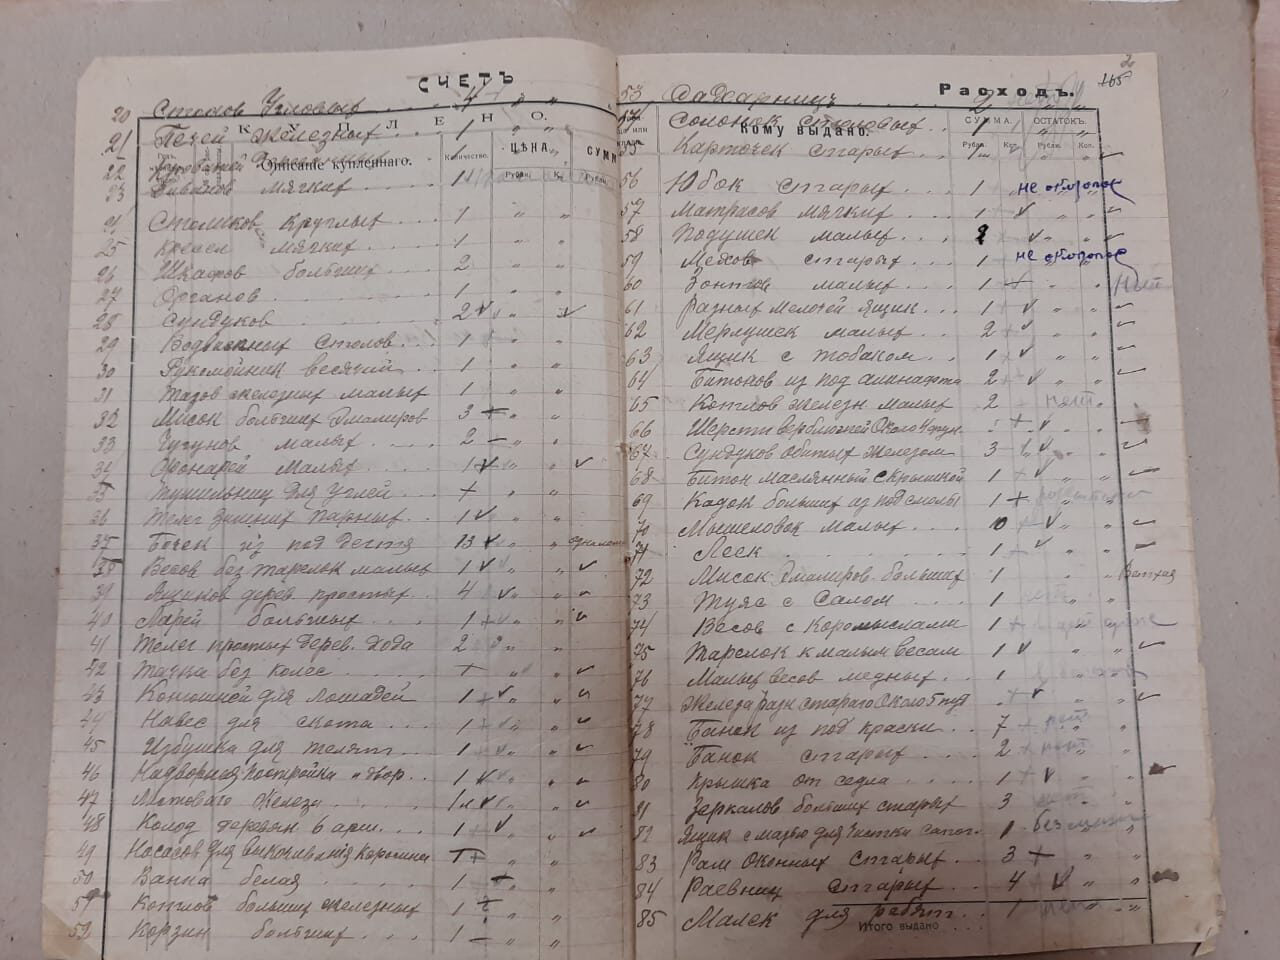 СЧЕТЪ
20 Столов Угловых . . . 4 " "
КУПЛЕНО.
21 Печей Железных . . . 1 " "
Описание купленнаго. Количество. ЦѢНА. СУММ
22 1
Рубли. К. Рубли.
23 Диванов мягких . . . 1
24 Столиков круглых . . 1 " "
25 Кресел мягких . . . 1 " "
26 Шкафов больших 2 " "
27 Органов . . . 1 " "
28 Сундуков . . . 2
29 столов . . 1 "
30 Рукомойник весячий . 1 "
31 Тазов железных малых 1 " "
32 Мисок больших Эмалиров 3 " "
33 Чугунов малых . . . 2 — " "
34 Фонарей Малых . . . 1 "
35 Тушильниц для углей . . "
36 Телег Зимних Парных . 1 " "
37 Бочек из под дегтя 13 "
38 Весов без тарелок малых 1 "
39 Ящиков дерев. простых . 4 "
40 Ларей больших . . . 1 "
41 Телег простых дерев. хода 2 "
42 Тачка без колес . . . "
43 Конюшней для лошадей 1 "
44 Навес для скота . . . 1 "
45 Избушка для телят . . 1 "
46 Надворная постройка и двор . . 1 "
47 Листоваго железа . . . "
48 Колод деревян 6 арш. . . 1 "
49 Насосов для выкачивания Керосина "
50 Ванна белая . . . 1 "
51 Котлов больших железных 1 "
52 Корзин больших . . . 1 — " "
2
165
Расходъ.
53 Сахарниц . . . 2
Кому выдано. СУММА. ОСТАТОКЪ.
54 Солонок Столовых . . 1 " "
Рубли. Коп. Рубли. Коп.
55 Карточек старых . . 1
56 Юбок старых . . . 1 не
57 Матрасов мягких . . . 1
58 Подушек малых . . . 2
59 Мехов старых . . 1 не
60 Зонтов малых . . 1 нет
61 Разных мелочей ящик . . 1 " "
62 Мерлушек малых . . 2 " "
63 Ящик с тобаком . . . 1 " "
64 Битонов из под 2 " "
65 Котлов железн малых 2 нет "
66 Шерсти верблюжей Около "
67 Сундуков обитых железом 3 " "
68 Битон маслянный с крышкой 1 " "
69 Кадок больших из под смолы 1
70 Мышеловок малых . . "
71 Леек . . . 1 " "
72 Мисок Эмалиров. больших 1 " " Ветхая
73 Туяс с Салом . . . 1 нет "
74 Весов с Коромыслами 1
75 Тарелок к малым весам 1 " "
76 Малых весов медных . . 1
77 Железа разн стараго Около 5 пуд " "
78 Банок из под краски . . 7 нет "
79 Банок старых . . . 2 нет "
80 Крышка от седла . . . 1 " "
81 Зеркалов больших старых 3 нет " "
82 Ящик с мазью для чистки сапог. 1 без "
83 Рам Оконных старых . . 3 " "
84 старых . . 4 " "
85 для ребят . . . 1 нет " "
Итого выдано . . .